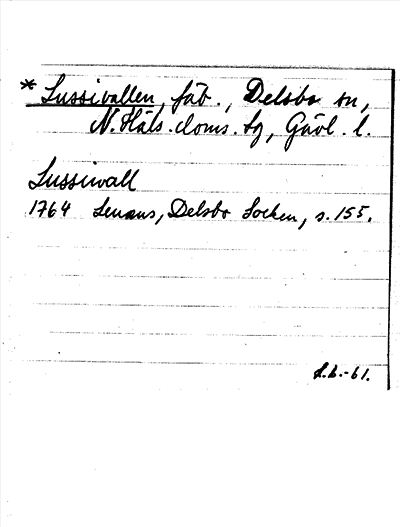 * Lussivallen, fäb., Delsbo sn,
N. Häls. doms. sg, Gävl. l.
Lussiwall
1764 Lenæus, Delsbo Socken, s. 155.
L.b.-61.